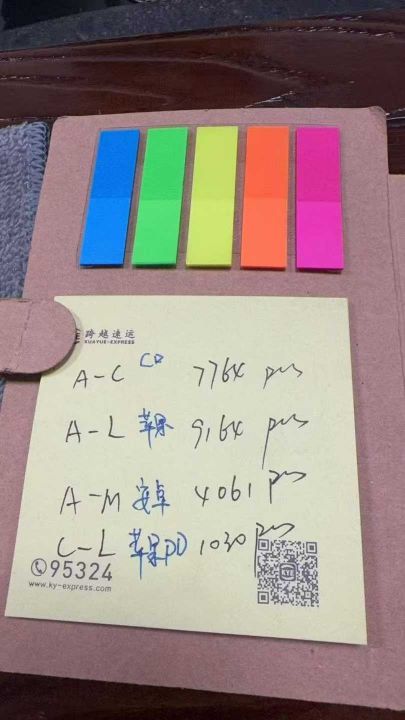 跨越速运
KUAYUE-EXPRESS
A-C CD 7764 pcs
A-L 苹果 9164 pcs
A-M 安卓 4061 pcs
C-L 苹果PD 1030 pcs
95324
www.ky-express.com